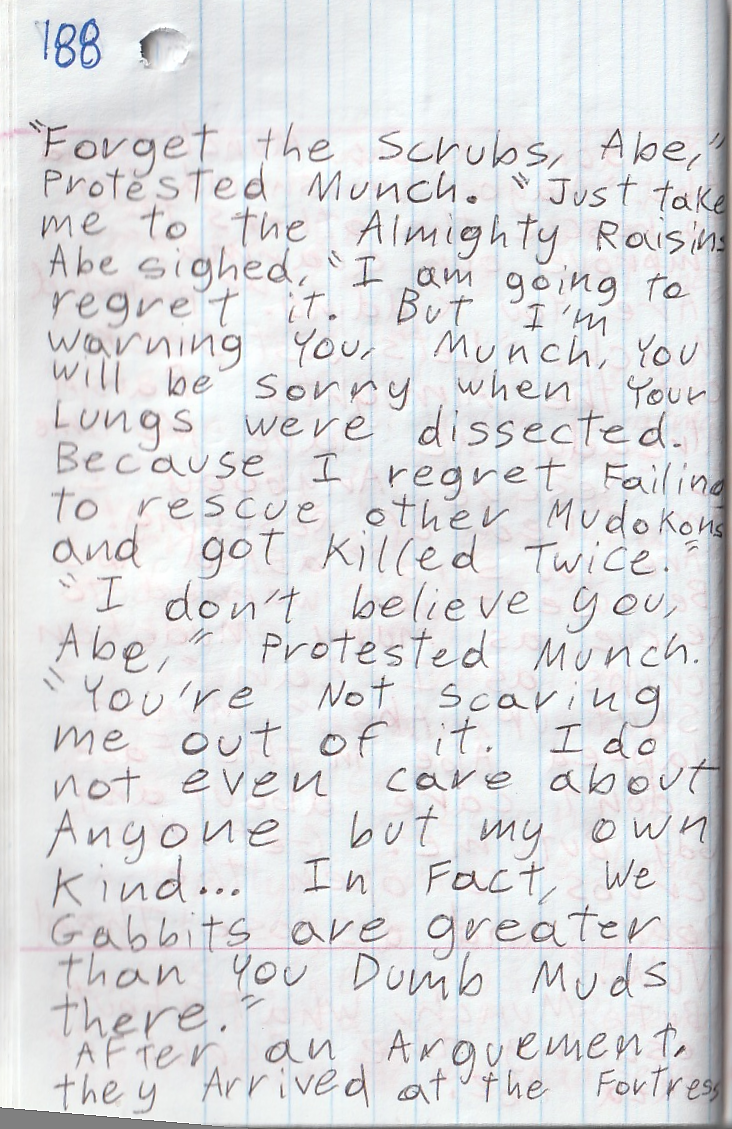 188
"Forget the Scrubs, Abe,"
Protested Munch. "Just take
me to the Almighty Raisins
Abe sighed, "I am going to
regret it. But I'm
warning You, Munch, You
will be sorry when Your
Lungs were dissected.
Because I regret Failing
to rescue other Mudokons
and got Killed Twice."
"I don't believe you,
Abe," Protested Munch.
"You're Not Scaring
me out of it. I do
not even care about
Anyone but my own
Kind... In Fact, We
Gabbits are greater
than You Dumb Muds
there."
After an Arguement,
they Arrived at the Fortress